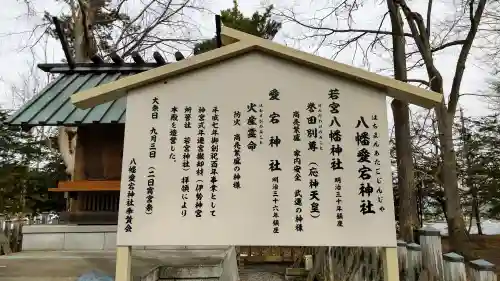 八幡愛宕神社
はちまんあたごじんじゃ
若宮八幡神社 明治三十年鎮座
誉田別尊(応神天皇)
商売繁盛 家内安全 武運の神様
愛宕神社 明治三十六年鎮座
火産霊命
防火 商売繁盛の神様
平成七年御創祀百年事業として
神宮式年遷宮撤却材(伊勢神宮
所管社 若宮社拝殿)拝損により
本殿を造営した。
大祭日 九月三日(二日宵宮祭)
八幡愛宕神社奉賛会